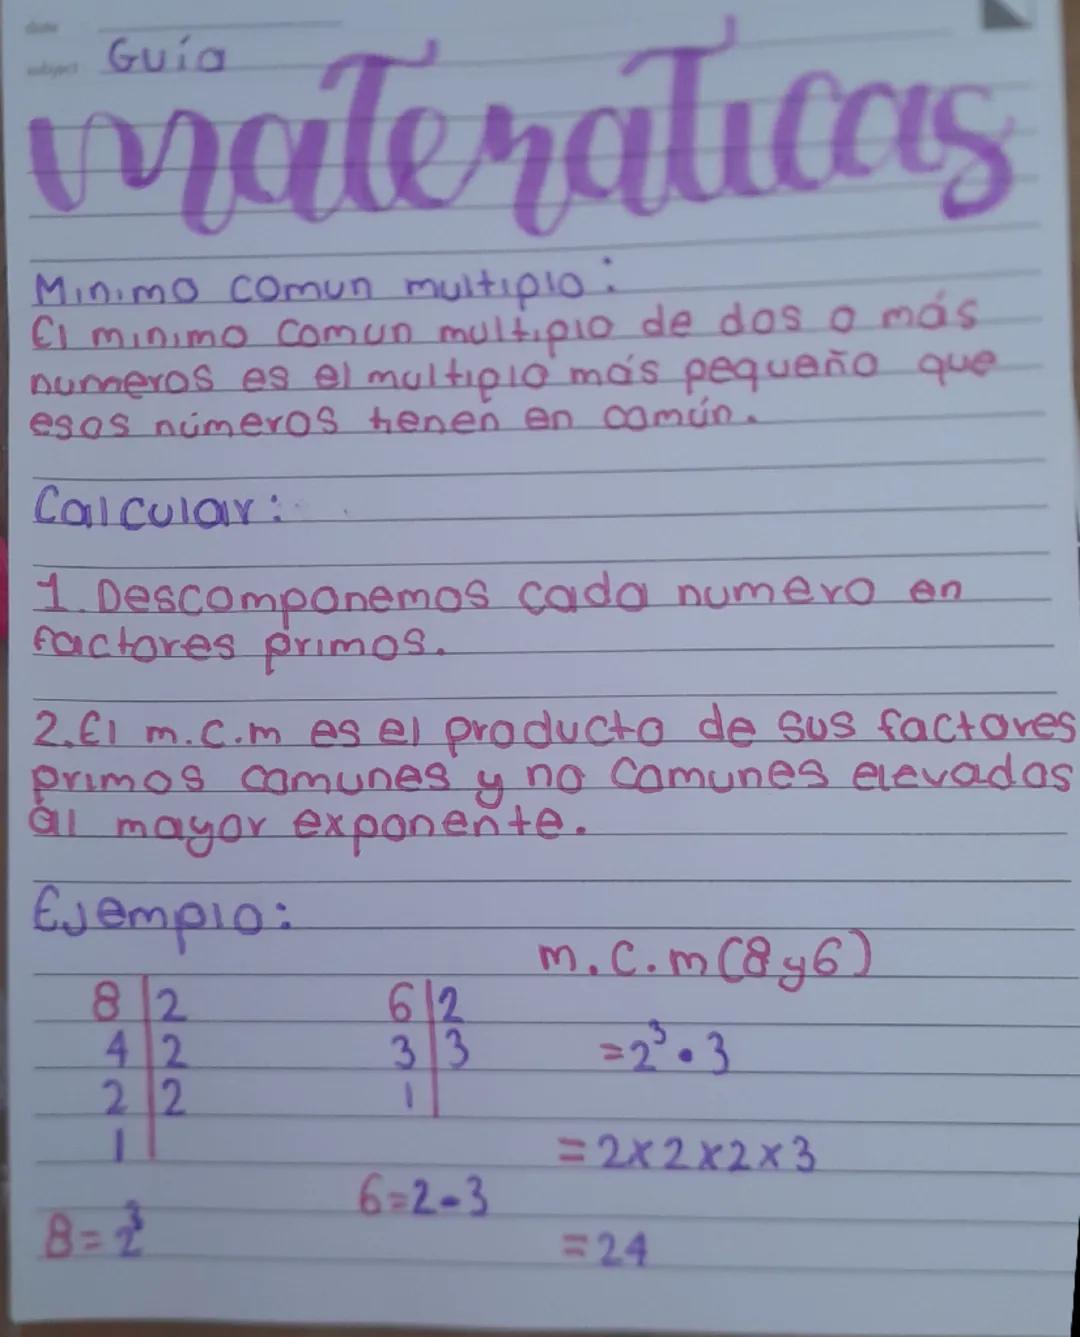 date
subject Guía
matematicas
Minimo comun multiplo:
El minimo comun multiplo de dos o más
numeros es el multiplo más pequeño que
esos números tienen en común.
Calcular:
1. Descomponemos cada numero en
factores primos.
2. El m.c.m es el producto de sus factores
primos comunes y no comunes elevados
al mayor exponente.
Ejemplo:
m.c.m (8 y 6)
8|2 6|2
4|2 3|3 =2³•3
2|2 1|
1|
=2x2x2x3
6=2-3
8=2³
=24